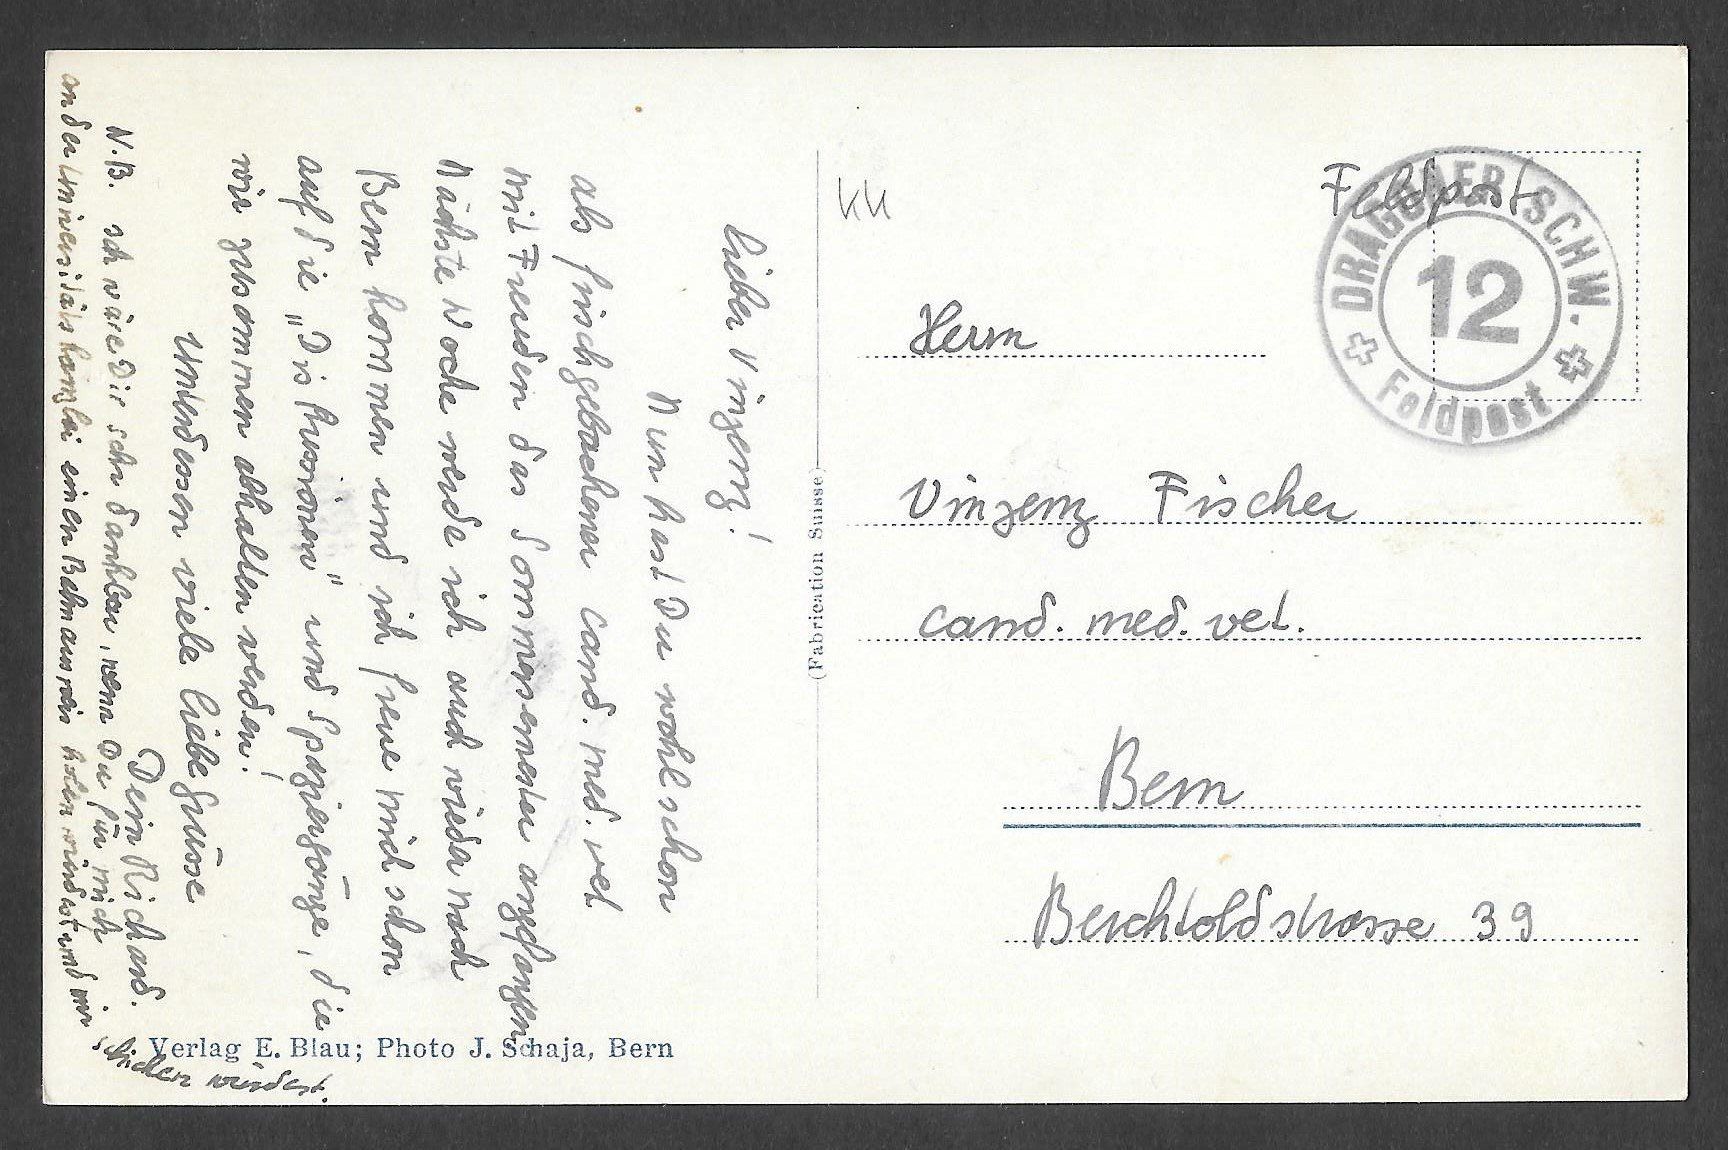 Lieber Vinzenz!
Nun hast Du wohl schon
als frischgebackener cand. med. vet
mit Freuden das Sommersemester angefangen
Nächste Woche werde ich auch wieder nach
Bern kommen und ich freue mich schon
auf die „Diskusionen" und Spaziergänge, die
wir zusammen abhalten werden!
Unterdessen viele liebe Grüsse
Dein Richard.
N.B. ich wäre Dir sehr dankbar, wenn Du für mich
an der Universitätskanzlei einen Bahnausweis holen würdest und mir
schicken würdest.
Verlag E. Blau; Photo J. Schaja, Bern
(Fabrication Suisse)
KK
Feldpost
DRAGONER SCHW.
12
Feldpost
Herrn
Vinzenz Fischer
cand. med. vet.
Bern
Berchtoldstrasse 39